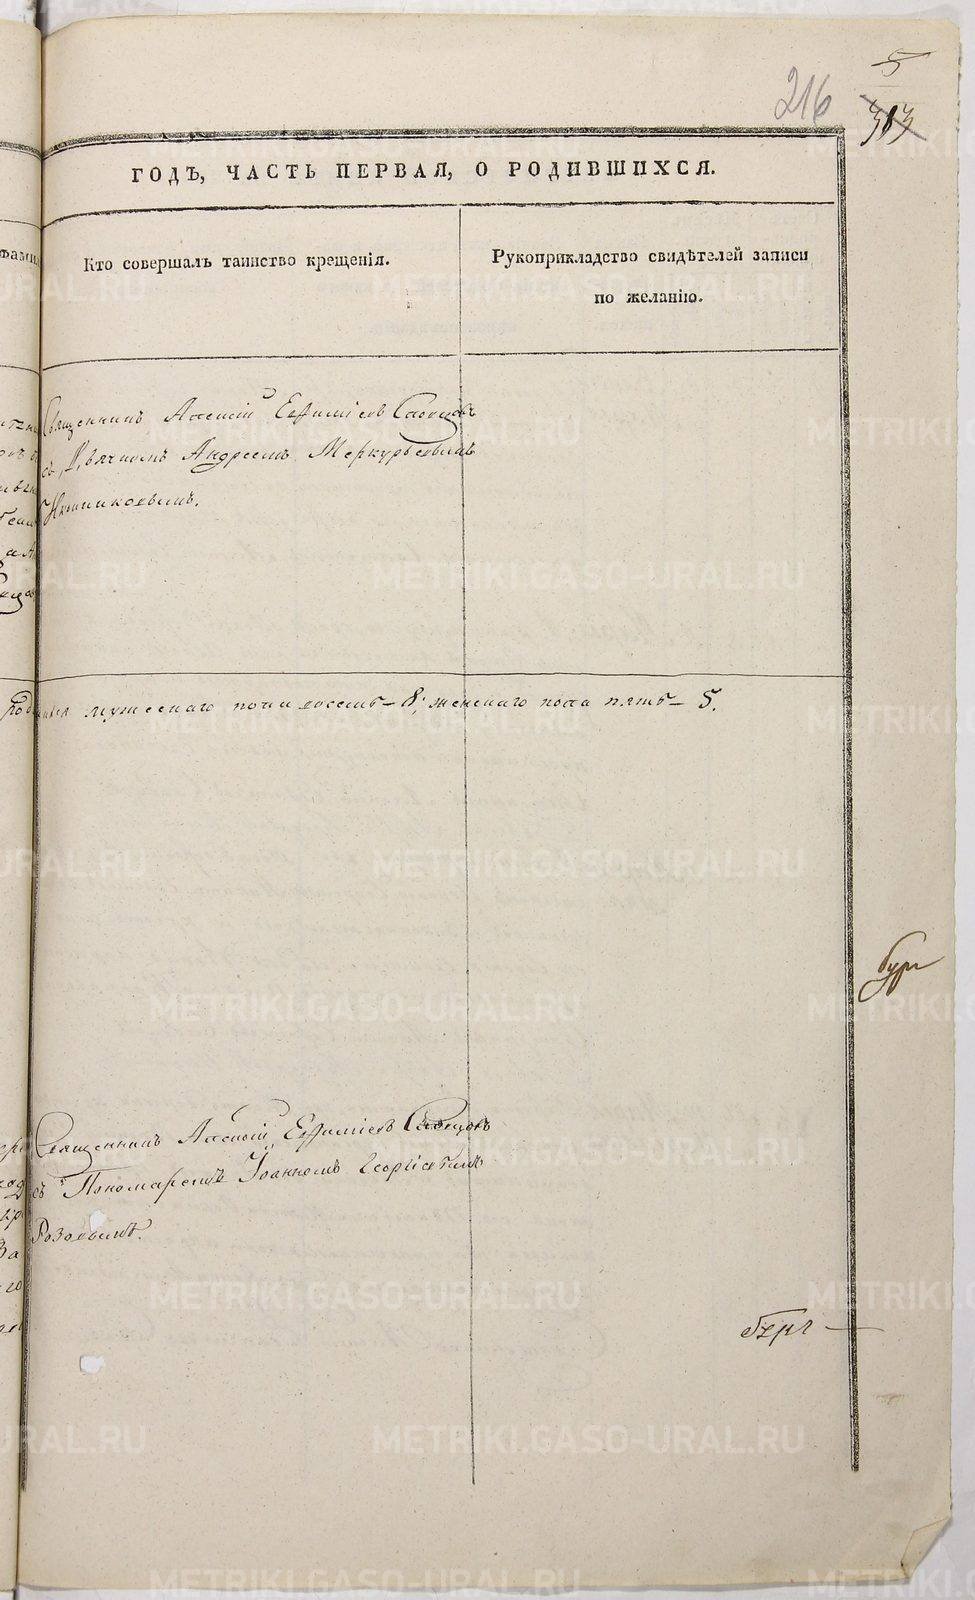 5
216
313
ГОДЪ, ЧАСТЬ ПЕРВАЯ, О РОДИВШИХСЯ.
Кто совершалъ таинство крещенія.
Рукоприкладство свидѣтелей записи
по желанію.
Священникъ Алексій Евфиміевъ Словцовъ
съ Дьячкомъ Андреемъ Меркурьевымъ
мужескаго пола восемь – 8, женскаго пола пять – 5.
Священникъ Алексій Евфиміевъ Словцовъ
съ Пономаремъ Іоанномъ Георгіевымъ
Розовымъ.
METRIKI.GASO-URAL.RU